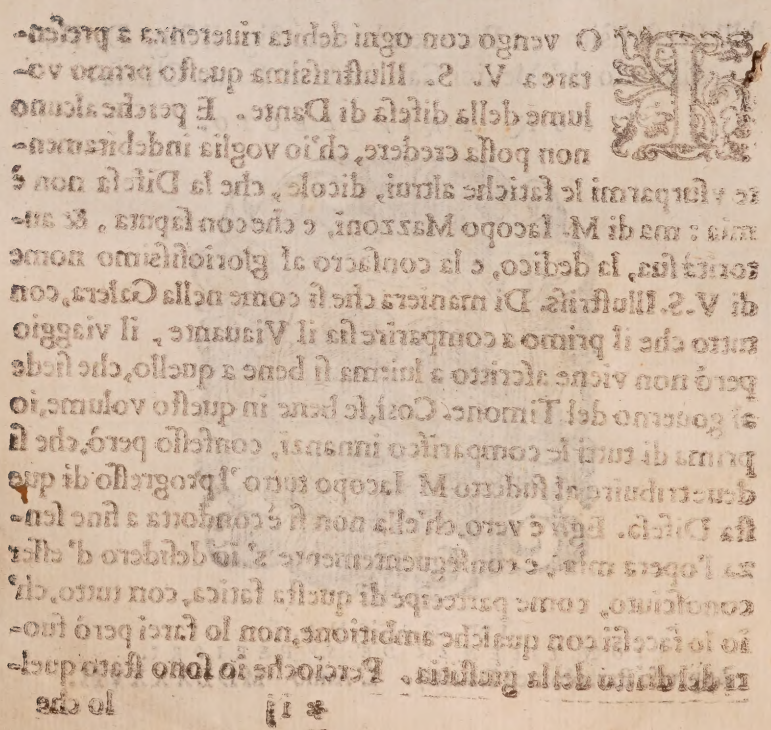 IO vengo con ogni debita riuerenza a presen-
tare a V. S. Illustrissima questo primo vo-
lume della difesa di Dante. E perche alcuno
non possa credere, ch'io voglia indebitamen-
te vsurparmi le fatiche altrui, dicole, che la Difesa non è
mia: ma di M. Iacopo Mazzoni, e che con saputa, & au-
torità sua, la dedico, e la consacro al gloriosissimo nome
di V.S.Illustriss. Di maniera che si come nella Galera, con
tutto che il primo a comparire sia il Viauante, il viaggio
però non viene ascritto a lui: ma si bene a quello, che siede
al gouerno del Timone. Così, se bene in questo volume, io
prima di tutti le comparisco innanzi, confesso però, che si
deue tribuire al sudetto M. Iacopo tutto 'l progresso di que
sta Difesa. Egli è vero, ch'ella non si è condotta a fine sen-
za l'opera mia; e conseguentemente s'io desidero d'esser
conosciuto, come partecipe di questa fatica, con tutto, ch'
io lo facessi con qualche ambitione, non lo farei però fuo-
ri del diritto della giustitia. Percioche io sono stato quel-
* ij lo che